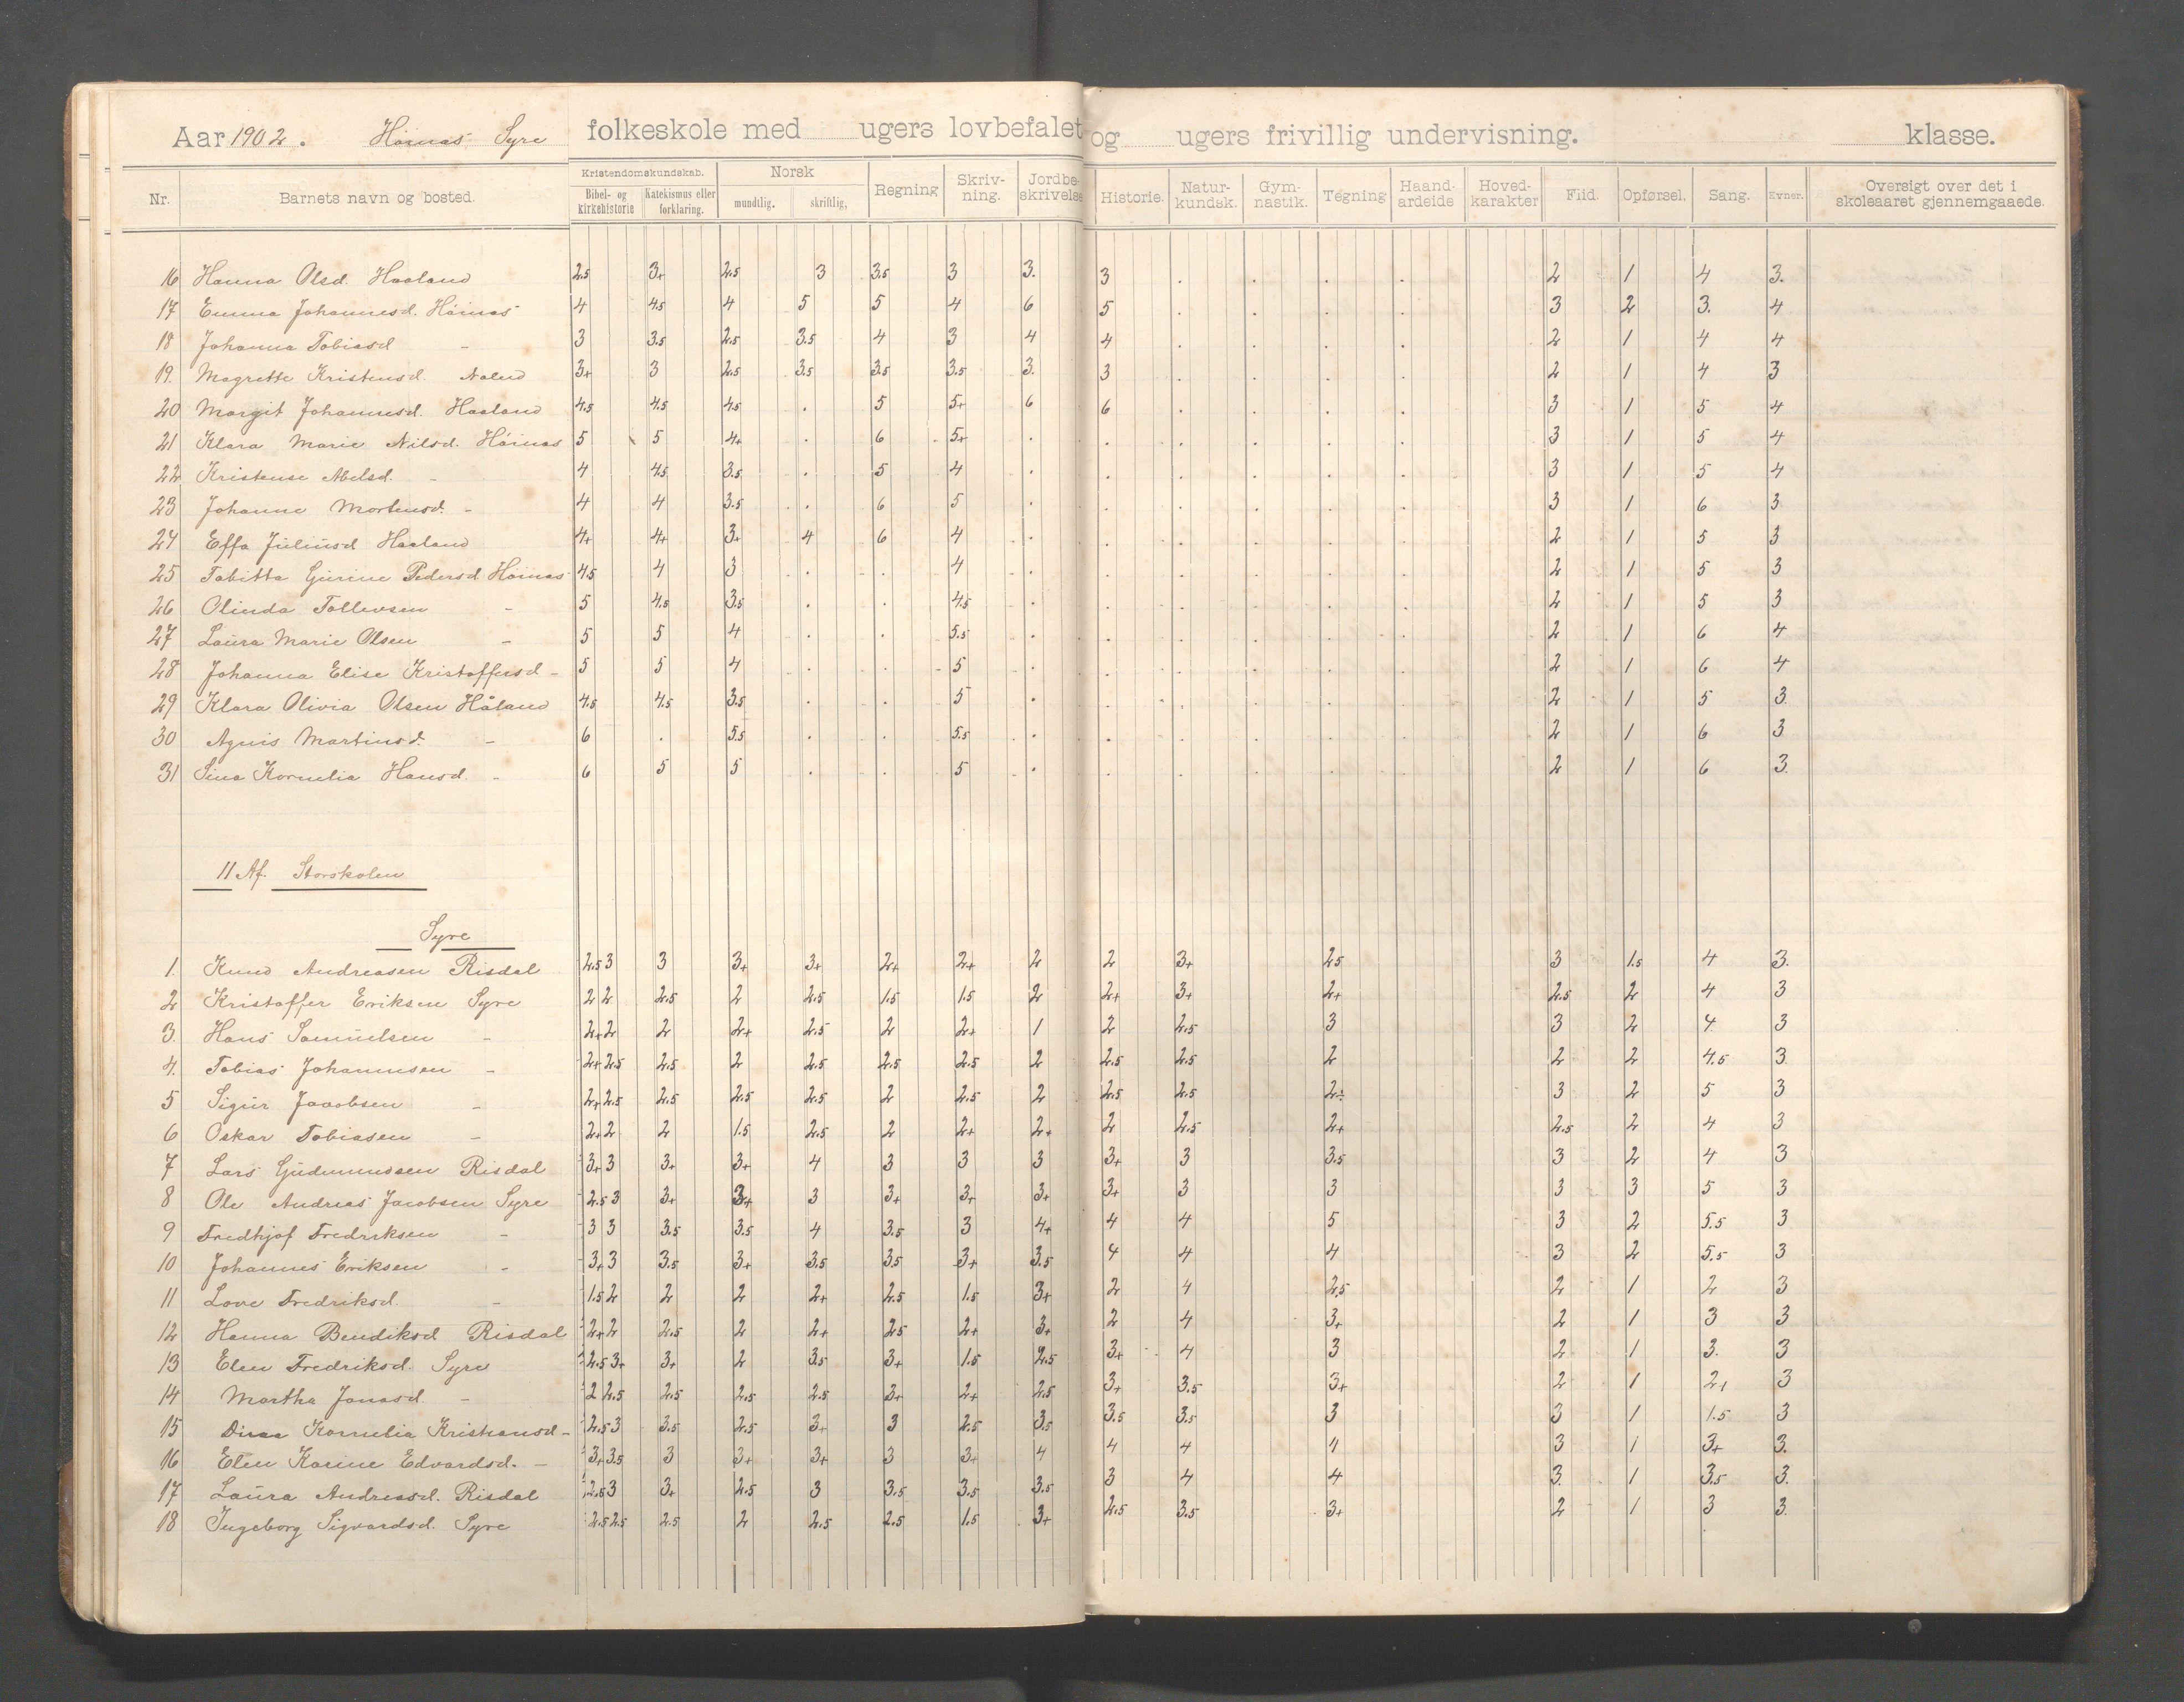 Aar 1902. Höinas Syre folkeskole med ugers lovbefalet og ugers frivillig undervisning. klasse.
Nr. Barnets navn og bosted. Kristendomskundskab. Bibel- og kirkehistorie Katekismus eller forklaring. Norsk mundtlig. skriftlig, Regning Skriv-ning. Jordbe-skrivelse Historie. Natur-kundsk. Gym-nastik. Tegning Haand-arbeide Hoved-karakter Flid. Opførsel. Sang. Evner. Oversigt over det i skoleaaret gjennemgaaede.
16 Hanna Olsd. Haaland 2.5 3+ 2.5 3 3.5 3 3. 3 . . . . 2 1 4 3.
17 Emma Johannesd. Höinas 4 4.5 4 5 5 4 6 5 . . . . 3 2 3. 4
18 Johanna Tobiasd - 3 3.5 2.5 3.5 4 3 4 4 . . . . 2 1 4 4
19. Magrette Kristensd. 3+ 3 2.5 3.5 3.5 3.5 3. 3 . . . . 2 1 4 3
20 Margit Johannesd. Haaland 4.5 4.5 4.5 . 5 5+ 6 6 . . . . 3 1 5 4
21 Klara Marie Nilsd. Höinas 5 5 4+ . 6 5+ . . . . . . 3 1 5 4
22 Kristense Abelsd. - 4 4.5 3.5 . 5 4 . . . . . . 3 1 5 4
23 Johanne Mortensd. - 4 4 3.5 . 6 5 . . . . . . 3 1 6 3
24 Effa Juliusd Haaland 4+ 4+ 3+ 4 6 4 . . . . . . 2 1 5 3
25 Tabitta Gurine Pedersd Höinas 4.5 4 3 . . 4 . . . . . . 2 1 5 3
26 Olinda Tollevsen - 5 4.5 3.5 . . 4.5 . . . . . . 2 1 5 3
27 Laura Marie Olsen - 5 5 4 . . 5.5 . . . . . . 2 1 6 4
28 Johanna Elise Kristoffersd - 5 5 4 . . 5 . . . . . . 2 1 6 4
29 Klara Olivia Olsen Håland 4.5 4.5 3.5 . . 5 . . . . . . 2 1 5 3.
30 Agnis Martinsd. - 6 . 5.5 . . 5.5 . . . . . . 2 1 6 3
31 Sina Kornelia Hansd. - 6 5 5 . . 5 . . . . . . 2 1 6 3.
II Af. Storskolen
Syre
1. Knud Andreasen Risdal 2.5 3 3 3+ 3+ 2+ 2+ 2 2 3+ 2.5 3 1.5 4 3.
2 Kristoffer Eriksen Syre 2 2 2.5 2 2.5 1.5 1.5 2 2+ 3+ 2+ 2.5 2 4 3
3. Hans Samuelsen - 2+ 2 2 2+ 2.5 2 2+ 1 2 2.5 3 3 2 4. 3
4. Tobias Johannesen - 2+ 2.5 2.5 2 2.5 2.5 2.5 2 2.5 2.5 2 2 2 4.5 3.
5 Sigur Jacobsen - 2+ 2.5 2.5 2.5 2.5 2 2.5 2 2.5 2.5 2+ 3 2 5 3
6 Oskar Tobiasen - 2+ 2 2 1.5 2.5 2 2+ 2+ 2 2.5 2+ 2.5 2 4 3
7 Lars Gudmundsen Risdal 3+ 3 3+ 3+ 4 3 3 3 3+ 3 3.5 3 2 4 3
8 Ole Andreas Jacobsen Syre 2.5 3 3+ 3+ 3 3+ 3+ 3+ 3+ 3 3 3 3 5 3
9 Fredhjof Fredriksen - 3 3 3.5 3.5 4 3.5 3 4+ 4 4 5 3 2 5.5 3
10 Johannes Eriksen - 3+ 3 3.5 3+ 3.5 3.5 3+ 3.5 4 4 4 3 2 5.5 3
11 Love Fredriksd. - 1.5 2 2 2 2+ 2.5 1.5 3+ 2 4 2.5 2 1 2 3
12 Hanna Bendiksd Risdal 2+ 2 2.5 2 2+ 2.5 2+ 3+ 2 4 3+ 2 1 3 3
13 Elen Fredriksd. Syre 2.5 3+ 3+ 2 3.5 3+ 1.5 2.5 3+ 4 3 2 1 3. 3
14 Martha Jonasd. - 2 2.5 2.5 2.5 2.5 3+ 2+ 2.5 3+ 3.5 3+ 2 1 2+ 3
15 Kornelia Kristiansd - 2.5 3 3.5 2.5 3+ 3 2.5 3.5 3.5 3.5 3 3 1 1.5 3
16 Elen Karine Edvardsd. - 3+ 3.5 3 3+ 3+ 3 3+ 4 4 4 4 3 1 3+ 3.
17 Laura Andreasd. Risdal 2.5 3 3+ 2.5 3 3.5 3.5 3.5 3 4 4 3. 1 3.5 3.
18 Ingeborg Sigvardsd. Syre 2.5 2.5 2.5 2 2.5 2.5 1.5 3+ 2.5 3.5 3+ 2 1 3 3.